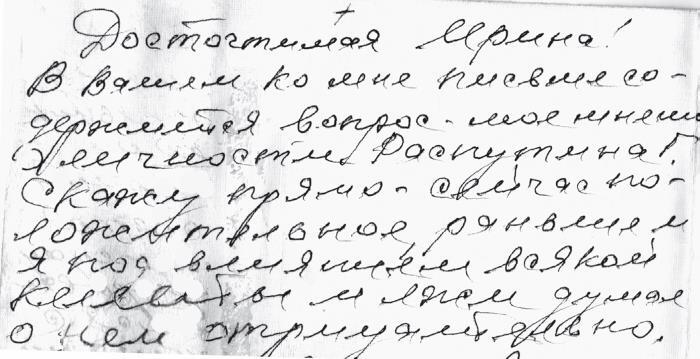 +
Досточтимая Ирина!
В вашем ко мне письме со-
держится вопрос - мое мнени
о личности Распутина Г.
Скажу прямо - сейчас по-
ложительное, раньше
я под влиянием всякой
клеветы и лжи думал
о нем отрицательно.